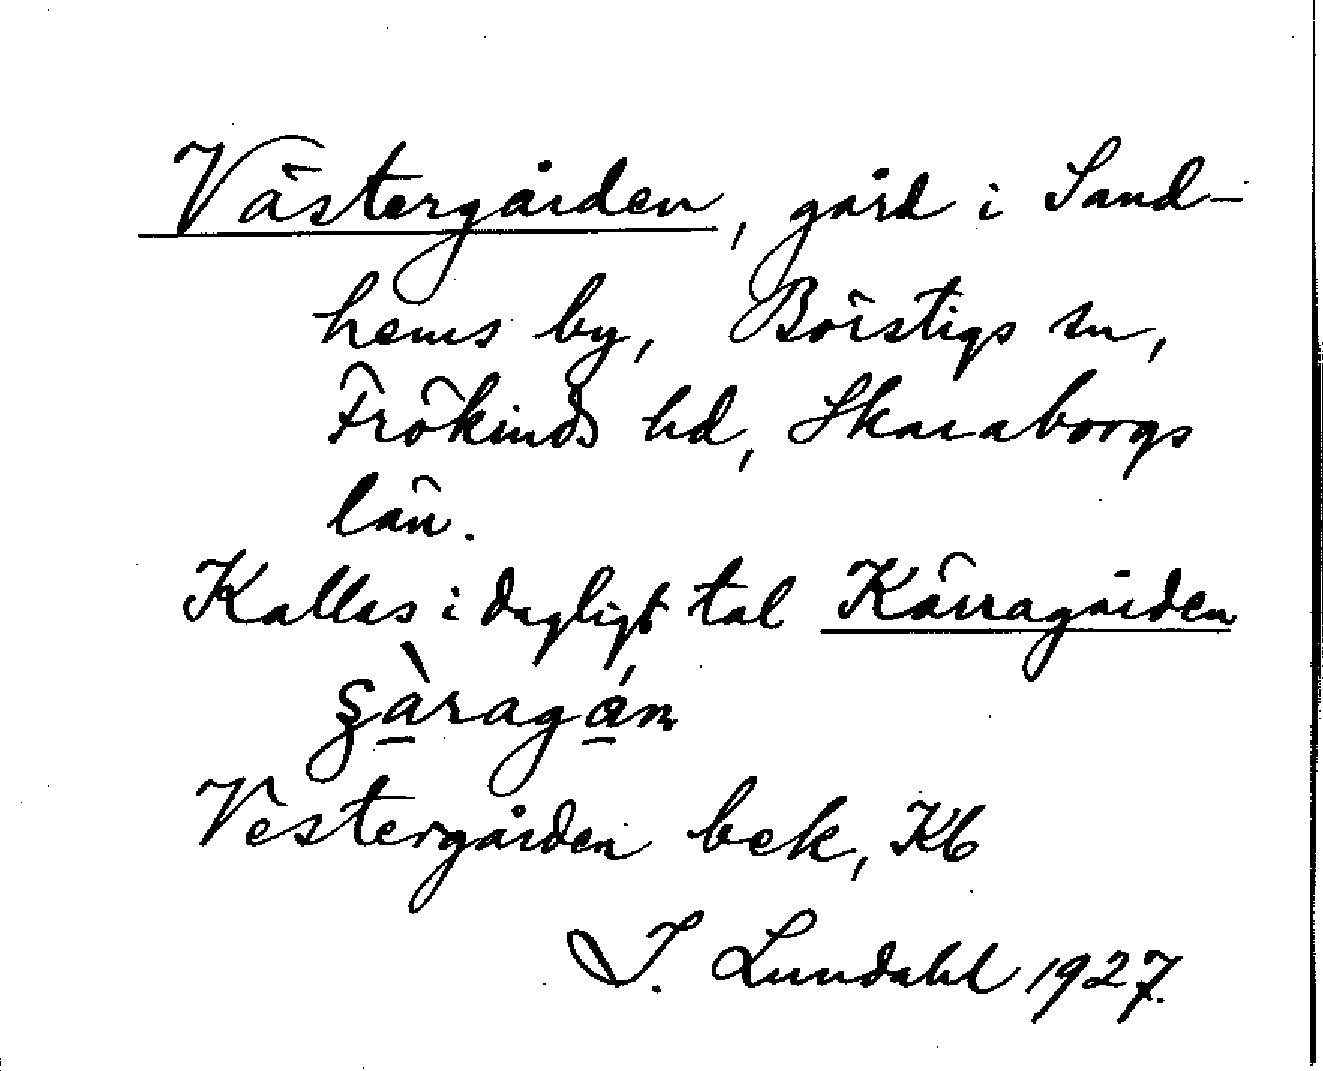 Västergården, gård i Sand-
hems by, Börstigs sn,
Frökinds hd, Skaraborgs
län.
Kallas i dagligt tal Kärragården
s̨à̱ragá̱n
Vestergården bek, Kb
I. Lundahl 1927.